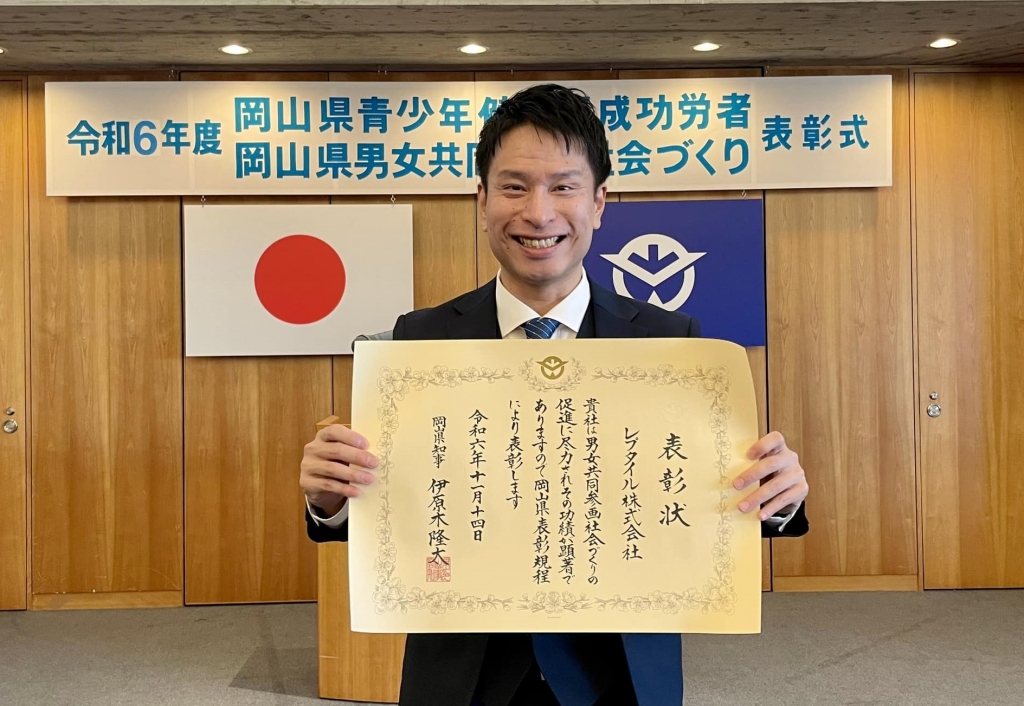 令和6年度
岡山県青少年健 成功労者
岡山県男女共同 社会づくり
表彰式
表彰状
レプタイル株式会社
貴社は男女共同参画社会づくりの
促進に尽力されその功績が顕著で
ありますので岡山県表彰規程
により表彰します
令和六年十一月十四日
岡山県知事 伊原木隆太